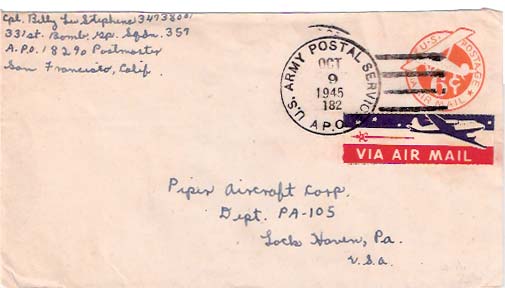 Cpl. Billy Lee Stephens 34738001
331st. Bomb. Gp. Sqdn. 357
A.P.O. 18290 Postmaster
San Francisco, Calif.
U.S. ARMY POSTAL SERVICE
OCT
9
1945
182
A.P.O.
U.S. POSTAGE
6¢
VIA AIR MAIL
VIA AIR MAIL
Piper Aircraft Corp.
Dept. PA-105
Lock Haven, Pa.
U.S.a.